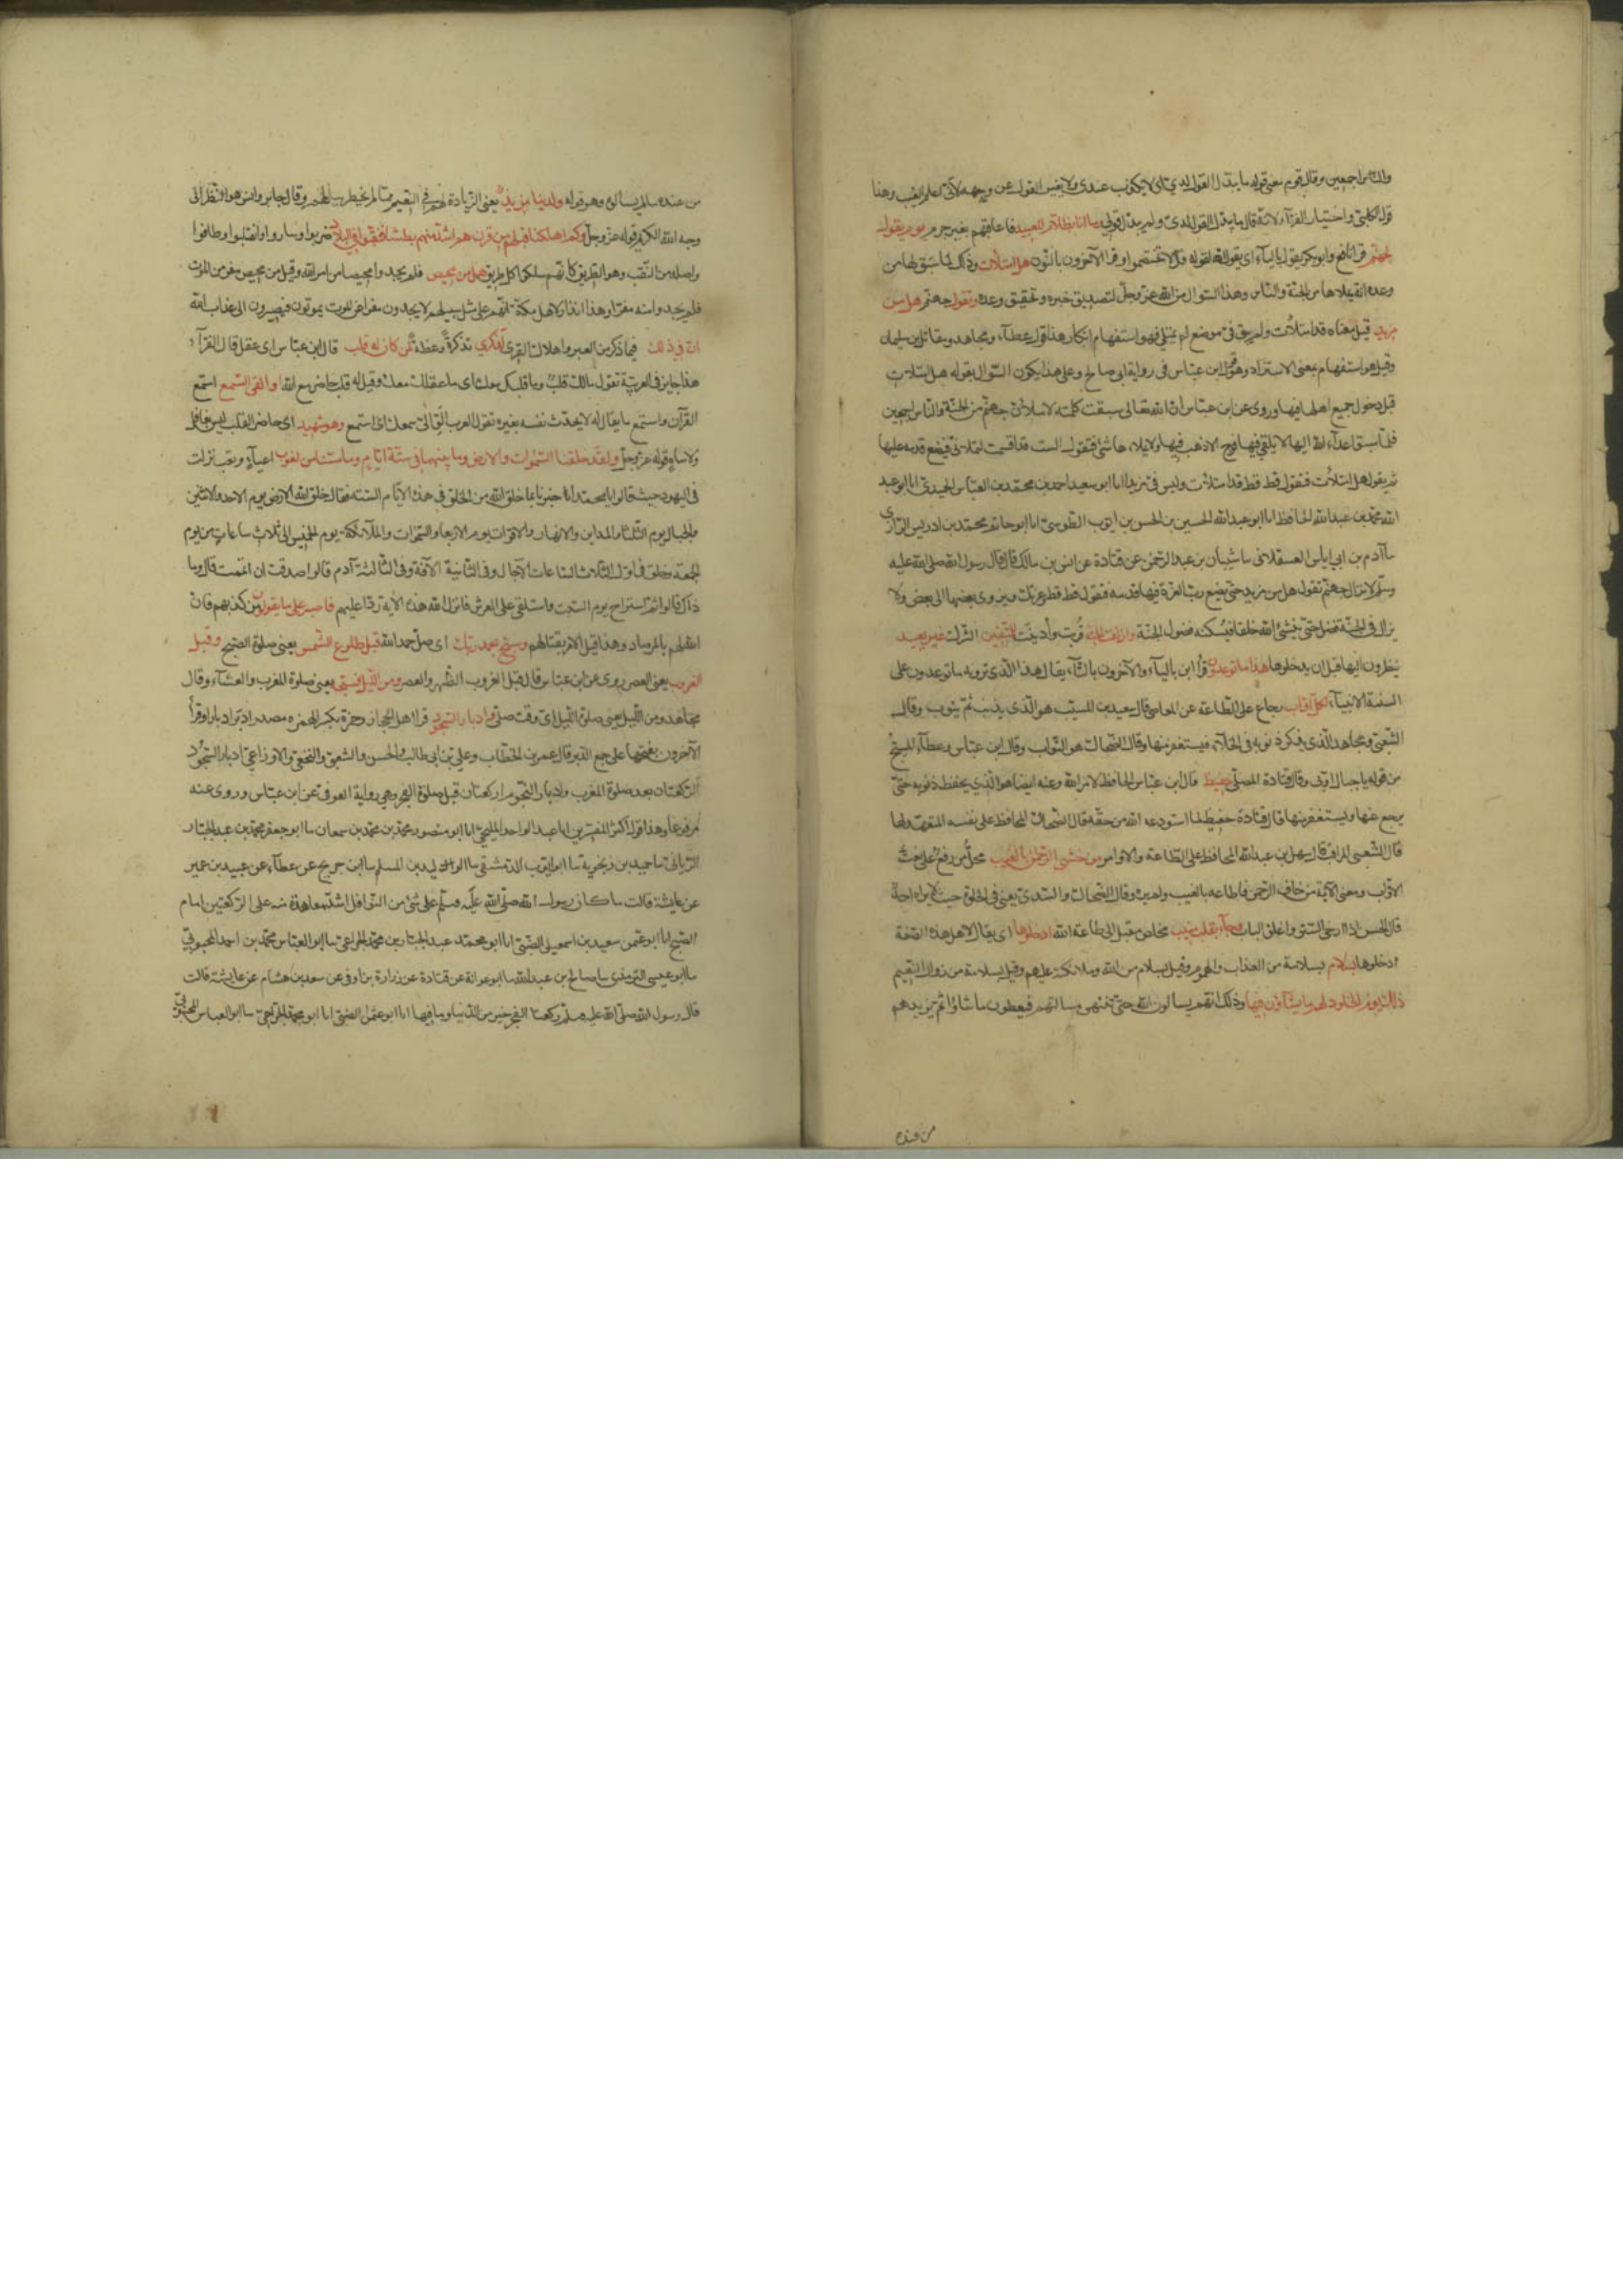 والناس اجمعين وقال قوم معنى قوله ما يبدل القول لدي اي لا يكذب عندي ولا يغير القول عن وجهه لاني اعلم الغيب وهذا
قول الكلبي واختيار الفراء لانه قال ما يبدل القول لدي ولم يقل يبدل قولي وما انا بظلام للعبيد فاعاقبهم بغير جرم يوم يقول
لجهنم قرا نافع وابو بكر يقول بالياء اي يقول الله لقوله قال لا تختصموا وقرا الآخرون بالنون هل امتلأت وذلك لما سبق لها من
وعده انه يملاها من الجنة والناس وهذا السوال من الله عز وجل لتصديق خبره وتحقيق وعده وتقول جهنم هل من
مزيد قيل معناه قد امتلأت ولم يبق في موضع لم يمتلي فهو استفهام انكار هذا قول عطاء ومجاهد ومقاتل بن سليمان
وقيل هو استفهام بمعنى الاستزاد وهو قول ابن عباس في رواية ابي صالح وعلى هذا يكون السوال بقوله هل امتلأت
قبل دخول جميع اهلها فيها وروى عن ابن عباس ان الله تعالى سبقت كلمته لاملأن جهنم من الجنة والناس اجمعين
فلما سبق اعداء الله اليها لا يلقى فيها فوج الا ذهب فيها ولا يملاها شئ فتقول الست قد اقسمت لتملأني فيضع قدمه عليها
ثم يقول هل امتلأت فتقول قط قط قد امتلأت وليس في مزيد انا ابو سعيد احمد بن محمد بن العباس الحميدي انا ابو عبد
الله محمد بن عبد الله الحافظ انا ابو عبد الله الحسين بن الحسن بن ايوب الطوسي انا ابو حاتم محمد بن ادريس الرازي
نا آدم بن ابي اياس العسقلاني نا شيبان بن عبد الرحمن عن قتادة عن انس بن مالك قال قال رسول الله صلى الله عليه
وسلم لا تزال جهنم تقول هل من مزيد حتى يضع رب العزة فيها قدمه فتقول قط قط وعزتك ويزوى بعضها الى بعض ولا
يزال في الجنة فضل حتى ينشئ الله خلقا فيسكنه فضول الجنة وازلفت الجنة قربت وأدنيت للمتقين الشرك غير بعيد
ينظرون اليها قبل ان يدخلوها هذا ما توعدون قرأ ابن بالياء والآخرون بالتاء يقال هذا الذي ترونه ما توعدون على
السنة الانبياء لكل اواب رجاع على الطاعة عن المعاصي قال سعيد بن المسيب هو الذي يذنب ثم يتوب وقال
الشعبي ومجاهد الذي يذكر ذنوبه في الخلاء فيستغفر منها وقال الضحاك هو التواب وقال ابن عباس وعطاء المسبح
من قوله يا جبال اوبي وقال قتادة المصلي حفيظ قال ابن عباس الحافظ لامر الله وعنه ايضا هو الذي يحفظ ذنوبه حتى
يرجع عنها ويستغفر منها قال قتادة حفيظ لما استودعه الله من حقه قال الضحاك المحافظ على نفسه المتعهد لها
قال الشعبي المراقب قال سهل بن عبد الله المحافظ على الطاعة والاوامر من خشي الرحمن بالغيب محل من رفع على نعت
الاواب ومعنى الآية من خاف الرحمن فاطاعه بالغيب ولم يره وقال الضحاك والسدي يعني في الخلوة حيث لا يراه احد
قال الحسن اذا ارخى الستر واغلق الباب وجاء بقلب منيب مخلص مقبل الى طاعة الله ادخلوها اي يقال لاهل هذه الصفة
ادخلوها بسلام بسلامة من العذاب والهموم وقيل بسلام من الله وملائكته عليهم وقيل بسلامة من زوال النعيم
ذلك يوم الخلود لهم ما يشاؤن فيها وذلك انهم يسالون الله حتى تنتهى مسالتهم فيعطون ما شاؤا ثم يزيدهم
من عنده
من عنده ما لم يسالوه وهو قوله ولدينا مزيد يعني الزيادة لهم في النعيم مما لم يخطر ببالهم وقال جابر وانس هو النظر الى
وجه الله الكريم قوله عز وجل وكم اهلكنا قبلهم من قرن هم اشد منهم بطشا فنقبوا في البلاد ضربوا وساروا وتقلبوا وطافوا
واصله من النقب وهو الطريق كانهم سلكوا كل طريق هل من محيص فلم يجدوا محيصا من امر الله وقيل من محيص مفر من الموت
فلم يجدوا منه مفرا وهذا انذار لاهل مكة انهم على مثل سبيلهم لا يجدون مفرا عن الموت يموتون فيصيرون الى عذاب الله
ان في ذلك فيما ذكر من العبر واهلاك القرى لذكرى تذكرة وعظة لمن كان له قلب قال ابن عباس اي عقل قال الفرآء
هذا جايز في العربية تقول مالك قلب وما قلبك معك اي ما عقلك معك وقيل له قلب حاضر مع الله او القى السمع استمع
القرآن واستمع ما يقال له لا يحدث نفسه بغيره تقول العرب الق الى سمعك اي استمع وهو شهيد اي حاضر القلب ليس بغافل
ولا ساه قوله عز وجل ولقد خلقنا السموات والارض وما بينهما في ستة ايام وما مسنا من لغوب اعياء وتعب نزلت
في اليهود حيث قالوا يا محمد اخبرنا بما خلق الله من الخلق في هذه الايام الستة فقال خلق الله الارض يوم الاحد والاثنين
والجبال يوم الثلثا والمداين والانهار والاقوات يوم الاربعا والسموات والملائكة يوم الخميس الى ثلاث ساعات من يوم
الجمعة وخلق في اول الثلاث الساعات الآجال وفي الثانية الآفة وفي الثالثة آدم قالوا صدقت ان اتممت قال وما
ذاك قالوا ثم استراح يوم السبت واستلقى على العرش فانزل الله هذه الآية ردا عليهم فاصبر على ما يقولون من كذبهم فان
الله لهم بالمرصاد وهذا قبل الامر بقتالهم وسبح بحمد ربك اي صل حمدا لله قبل طلوع الشمس يعني صلوة الصبح وقبل
الغروب يعني العصر روى عن ابن عباس قال قبل الغروب الظهر والعصر ومن الليل فسبحه يعني صلوة المغرب والعشاء وقال
مجاهد ومن الليل يعني صلوة الليل اي وقت صلى وادبار السجود قرا اهل الحجاز وحمزة بكسر الهمزه مصدر ادبر ادبارا وقرأ
الآخرون بفتحها على جمع الدبر قال عمر بن الخطاب وعلي بن ابي طالب والحسن والشعبي والنخعي والاوزاعي ادبار السجود
الركعتان بعد صلوة المغرب وادبار النجوم الركعتان قبل صلوة الفجر وهي رواية العوفي عن ابن عباس وروى عنه
مرفوعا وهذا قول اكثر المفسرين انا عبد الواحد المليحي انا ابو منصور محمد بن محمد بن سمعان نا ابو جعفر محمد بن عبد الجبار
الرياني نا حميد بن زنجوية نا ابو ايوب الدمشقي نا الوليد بن المسلم نا ابن جريج عن عطاء عن عبيد بن عمير
عن عايشة قالت ما كان رسول الله صلى الله عليه وسلم على شئ من النوافل اشد معاهدة منه على الركعتين امام
الصبح انا ابو عثمن سعيد بن اسمعيل الضبي انا ابو محمد عبد الجبار بن محمد الجراحي نا ابو العباس محمد بن احمد المحبوبي
نا ابو عيسى الترمذي نا صالح بن عبد الله نا ابو عوانة عن قتادة عن زرارة بن اوفى عن سعد بن هشام عن عايشة قالت
قال رسول الله صلى الله عليه وسلم ركعتا الفجر خير من الدنيا وما فيها انا ابو عثمن الضبي انا ابو محمد الجراحي نا ابو العباس المحبوبي